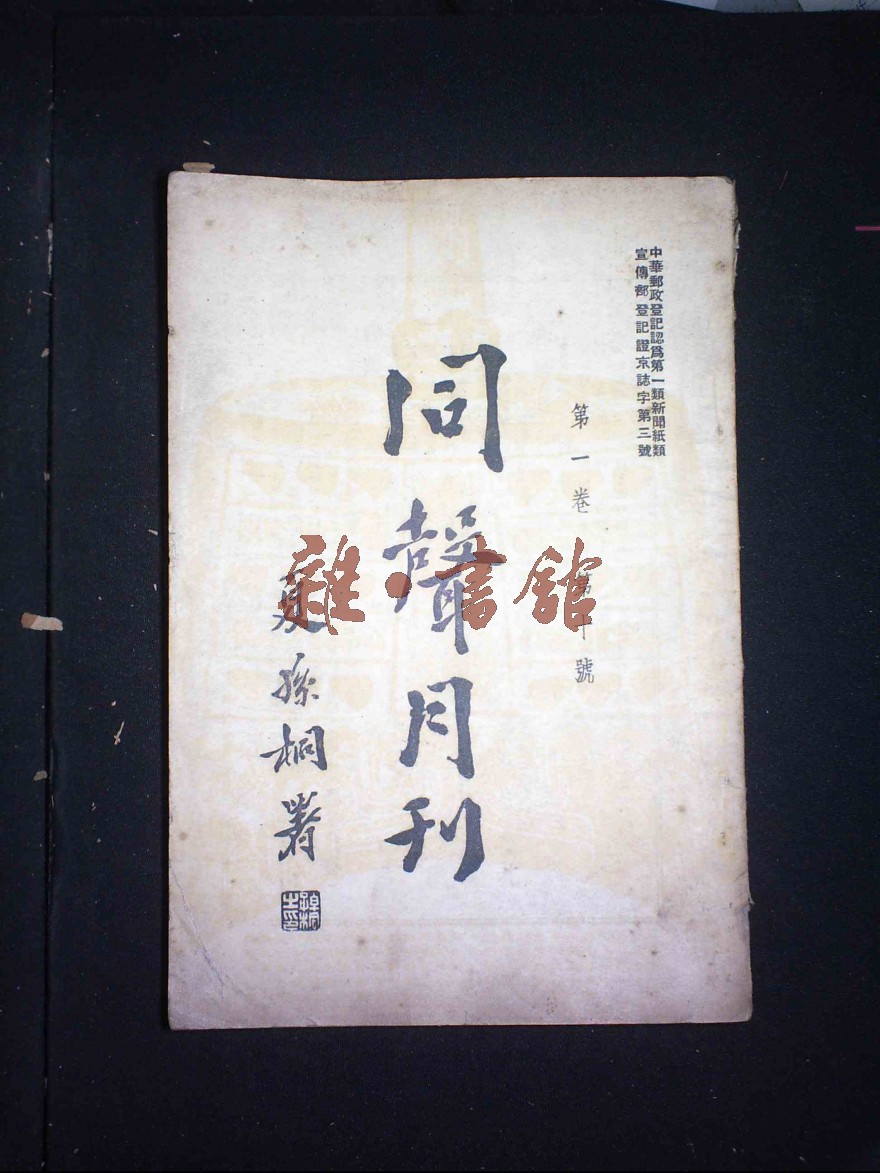 中華郵政登記認爲第一類新聞紙類
宣傳部登記證京誌字第三號
第一卷 第十號
同聲月刊
夏孫桐署
雜·書館